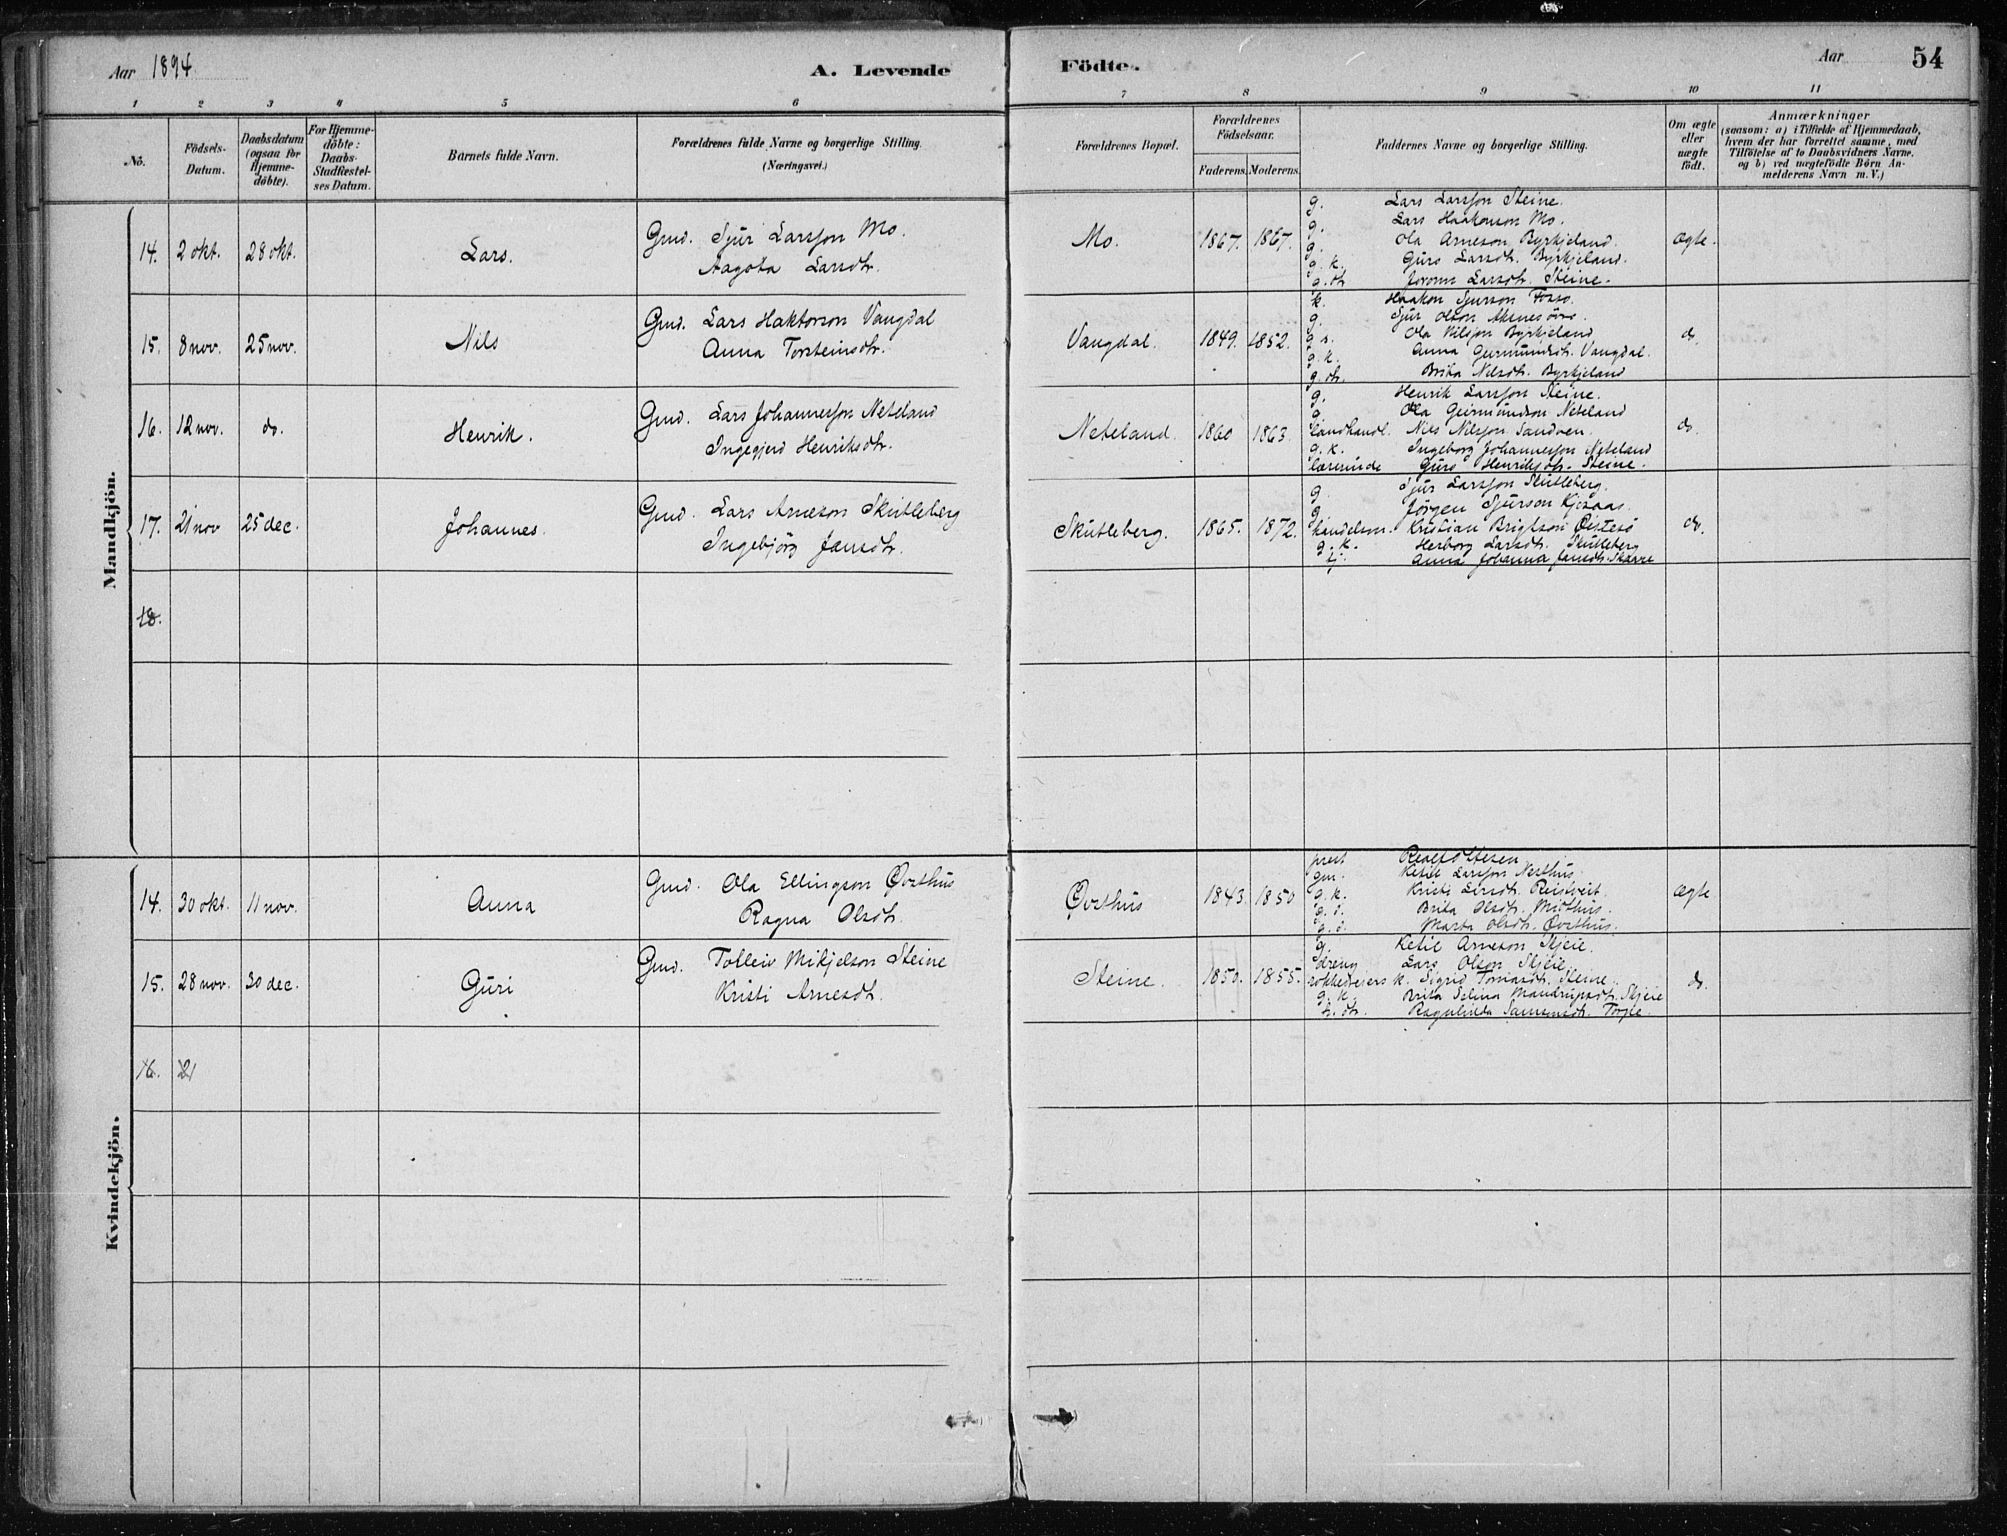 Aar 1894
A. Levende
Födte.
Aar
54
1 2 3 4 5 6 7 8 9 10 11
No.
Födsels-
Datum.
Daabsdatum
(ogsaa for
Hjemme-
döbte).
For Hjemme-
döbte:
Daabs-
Stadfæstel-
ses Datum.
Barnets fulde Navn.
Forældrenes fulde Navne og borgerlige Stilling.
(Næringsvei.)
Forældrenes Bopæl.
Forældrenes
Födselsaar.
Faderens. Moderens.
Faddernes Navne og borgerlige Stilling.
Om ægte
eller
uægte
födt.
Anmærkninger
(saasom: a) i Tilfælde af Hjemmedaab,
hvem der har forrettet samme, med
Tilföielse af to Daabsvidners Navne,
og b) ved uægtefödte Börn An-
melderens Navn m. V.)
Mandkjön.
14. 2 okt. 28 okt. Lars.
Gmd. Sjur Larsson Mo.
Aagota Larsdtr.
Mo. 1867. 1867.
g. Lars Larsson Steine.
g. Lars Haakonson Mo.
g. Ola Arneson Byrkjeland.
g. k. Guro Larsdtr. Byrkjeland.
g. dtr Joronn Larsdtr. Steine.
ægte.
15. 8 nov. 25 nov. Nils
Gmd. Lars Haktorson Vangdal
Anna Torsteinsdtr.
Vangdal. 1849. 1852.
k. Haakon Sjurson Fosso.
g. Sjur Olson
g. s. Ola Nilsson Byrkjeland
g. k. Anna Geirmundsdtr. Vangdal.
g. dtr. Brita Nilsdtr. Byrkjeland
do.
16. 12 nov. do. Henrik.
Gmd. Lars Johannesson Neteland
Ingegjerd Henriksdtr.
Neteland. 1860 1863.
g. Henrik Larsson Steine.
g. Ola Geirmundson Neteland
landhandl. Nils Nilsson Sandven.
g. k. Ingeborg Johannesson Neteland
lærerinde Guro Henriksdtr. Steine.
do.
17. 21 nov 25 dec. Johannes.
Gmd. Lars Arneson Skutleberg
Ingebjörg Jansdtr.
Skutleberg. 1865. 1872.
g. Sjur Larsson Skutleberg.
g. Jørgen Sjurson Kjosaas.
handelsm. Kristian Brigtson Øystesö
g. k. Herborg Larsdtr. Skutleberg
tj. Anna Johanna Jansdtr. Skaare
do.
18.
Kvindekjön.
14. 30 okt. 11 nov. Anna
Gmd. Ola Ellingson Øvsthus
Ragna Olsdtr.
Øvsthus 1843. 1850
prest
gm. Ketil Larsson Nesthus.
g. k. Kristi Larsdtr.
g. d. Brita Olsdtr. Midthus.
g. d. Marta Olsdtr. Øvsthus.
ægte
15. 28 nov. 30 dec. Guri
Gmd. Tolleiv Mikjelson Steine
Kristi Arnesdtr.
Steine. 1850. 1855.
g. Ketil Arneson Skjeie.
dreng Lars Olson Skjeie.
k. Sigrid Tomasdtr. Steine.
g. k. Brita Selina Mandrupsdtr. Skjeie
Ragnhilda Samsonsdtr.
do.
16. 21